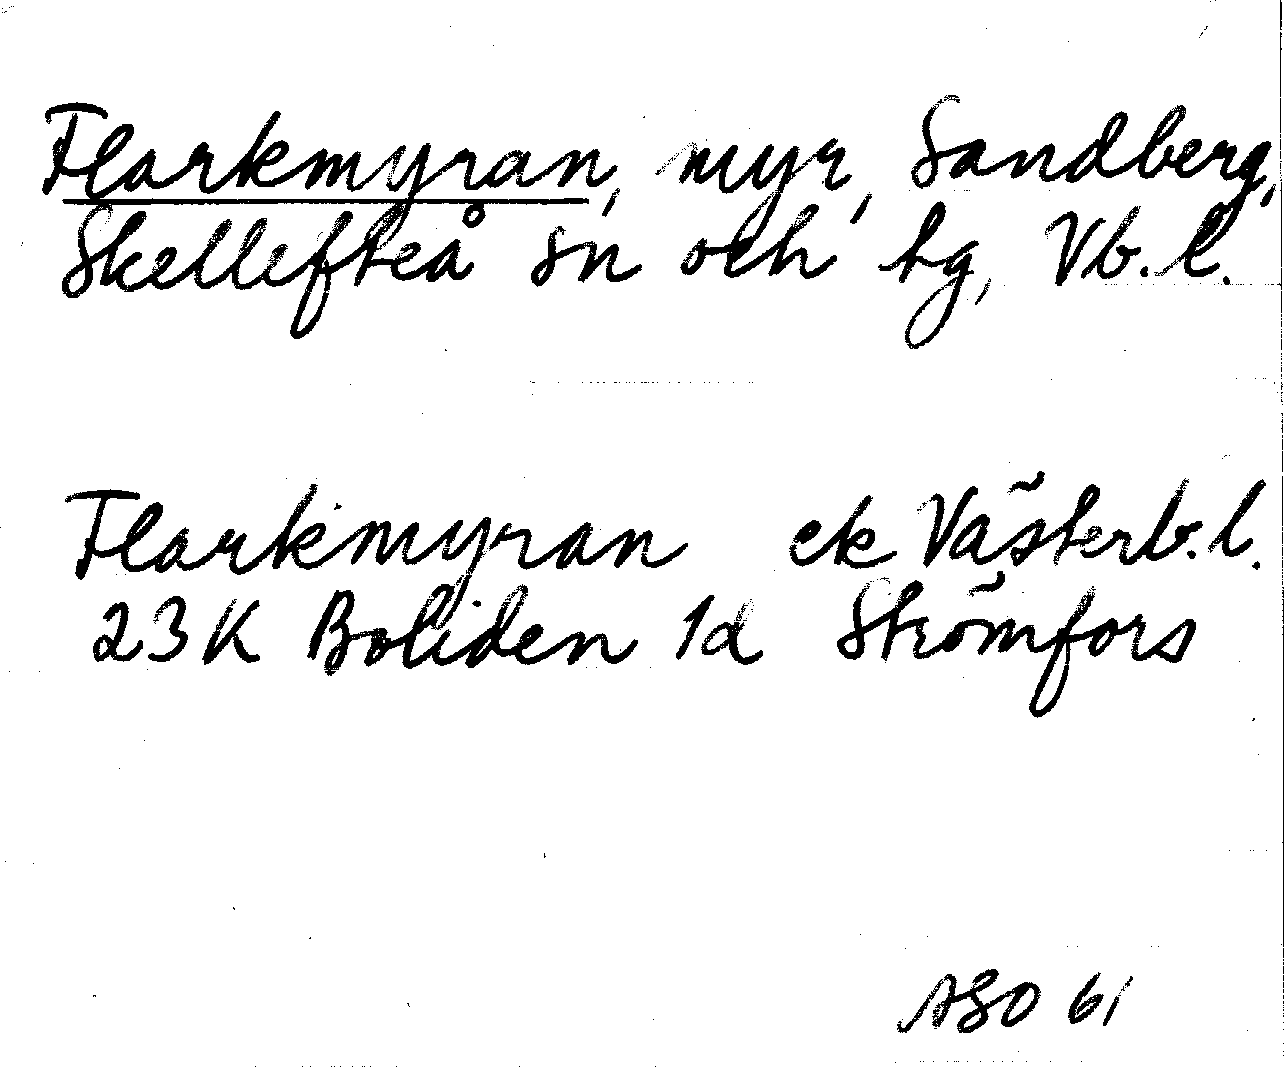 Flarkmyran, myr, Sandberg,
Skellefteå sn och tg, Vb. l.
Flarkmyran ek Västerb. l.
23K Boliden 1d Strömfors
ASO 61